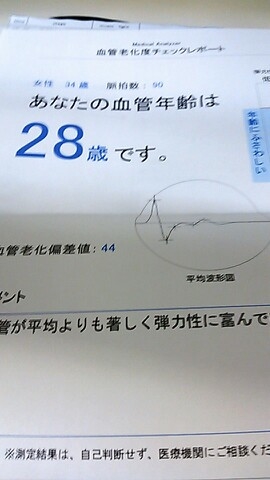 Medical Analyzer
血管老化度チェックレポート
女性 34歳 脈拍数: 90
あなたの血管年齢は
28歳です。
年齢にふさわしい
血管老化偏差値: 44
平均波形図
メント
管が平均よりも著しく弾力性に富んで
※測定結果は、自己判断せず、医療機関にご相談くだ